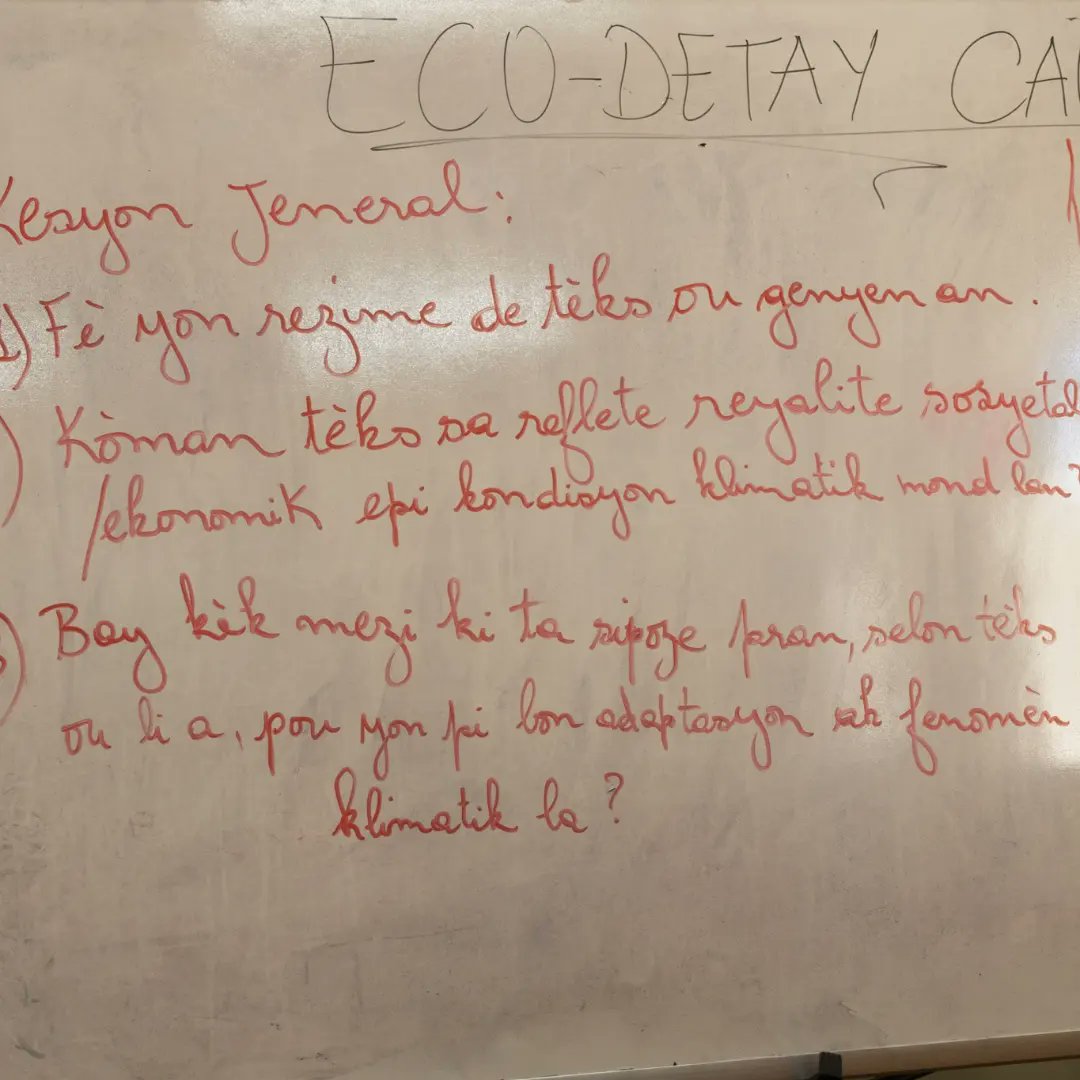 ECO-DETAY CA
Kesyon Jeneral:
1) Fè yon rezime de tèks ou genyen an.
) Kòman tèks sa reflete reyalite sosyetal
/ekonomik epi kondisyon klimatik mond lan?
) Bay kèk mezi ki ta sipoze pran, selon tèks
ou li a, pou yon pi bon adaptasyon ak fenomèn
klimatik la?